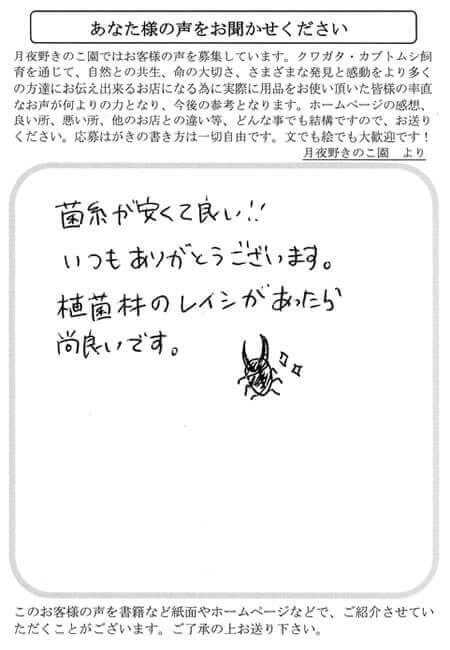 あなた様の声をお聞かせください
月夜野きのこ園ではお客様の声を募集しています。クワガタ・カブトムシ飼
育を通じて、自然との共生、命の大切さ、さまざまな発見と感動をより多く
の方達にお伝え出来るお店になる為に実際に用品をお使い頂いた皆様の率直
なお声が何よりの力となり、今後の参考となります。ホームページの感想、
良い所、悪い所、他のお店との違い等、どんな事でも結構ですので、お送り
ください。応募はがきの書き方は一切自由です。文でも絵でも大歓迎です！
月夜野きのこ園　より
菌糸が安くて良い!!
いつもありがとうございます。
植菌材のレイシがあったら
尚良いです。
このお客様の声を書籍など紙面やホームページなどで、ご紹介させてい
ただくことがございます。ご了承の上お送り下さい。